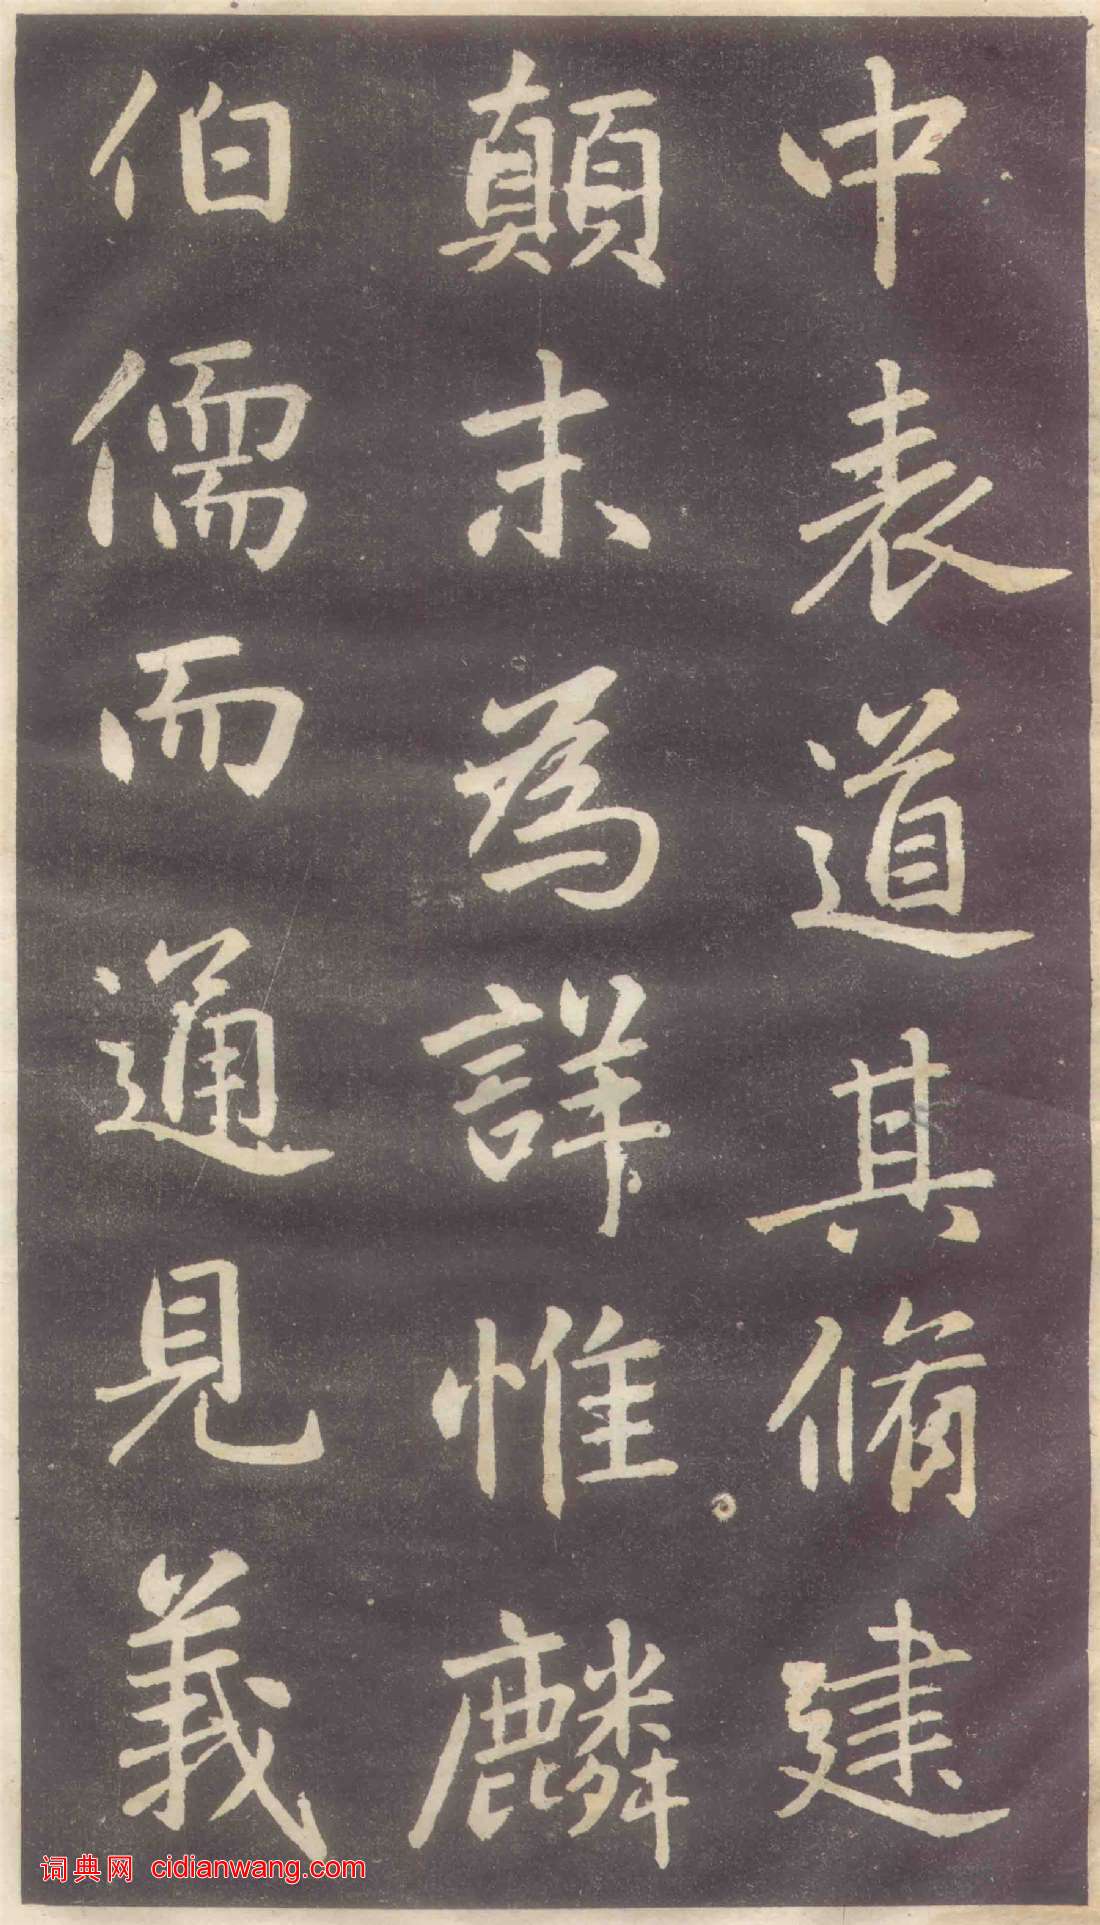 中表道其脩建
顛末為詳惟麟
伯儒而通見義
词典网 cidianwang.com